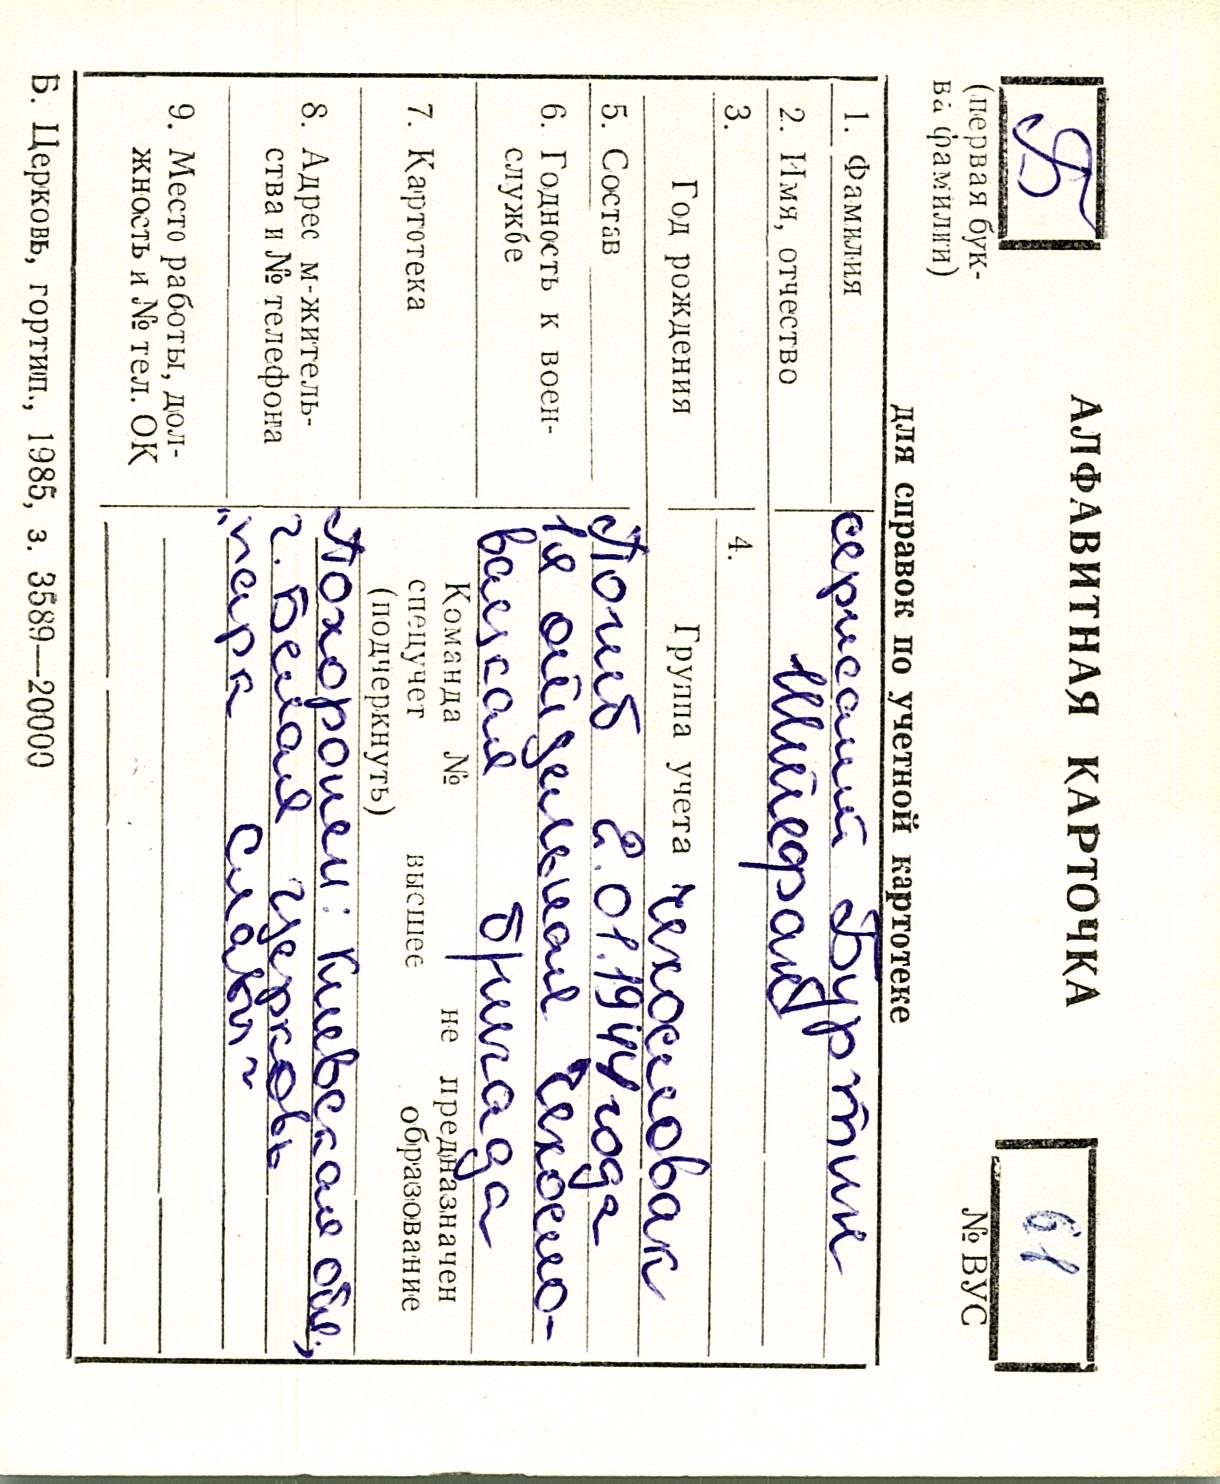 АЛФАВИТНАЯ КАРТОЧКА
для справок по учетной картотеке
Б
(первая бук-
ва фамилии)
61
№ ВУС
1. Фамилия сержант Буртин
2. Имя, отчество Штефан
3.
4.
Год рождения
Группа учета чехословак
5. Состав Погиб 2.01.1944 года
6. Годность к воен-
службе
1я отдельная Чехосло-
вацкая бригада
7. Картотека
Команда № не предназначен
спецучет высшее образование
(подчеркнуть)
8. Адрес м-житель-
ства и № телефона
Похоронен: Киевская обл.,
г. Белая Церковь
"парк Славы"
9. Место работы, дол-
жность и № тел. ОК
Б. Церковь, гортип., 1985, з. 3589—20000